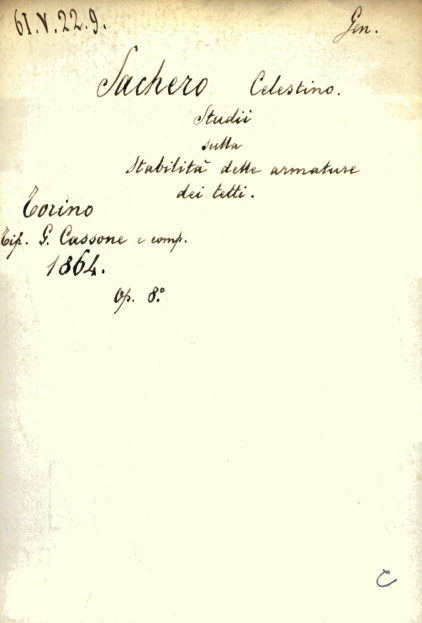 61.V.22.9.
Gen.
Sachero Celestino.
Studii
sulla
stabilità delle armature
dei tetti.
Torino
Tip. G. Cassone e comp.
1864.
Op. 8º
C